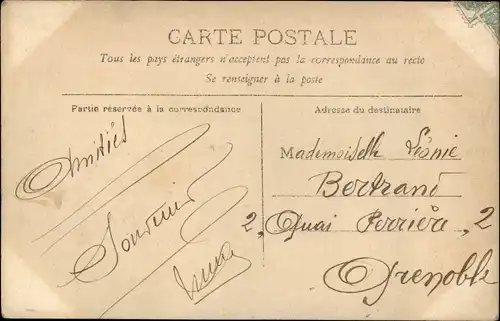 CARTE POSTALE
Tous les pays étrangers n'acceptent pas la correspondance au recto
Se renseigner à la poste
Partie réservée à la correspondance
Amitiés
Souvenir
Adresse du destinataire
Mademoiselle Léonie
Bertrand
2, Quai Perrière, 2
Grenoble